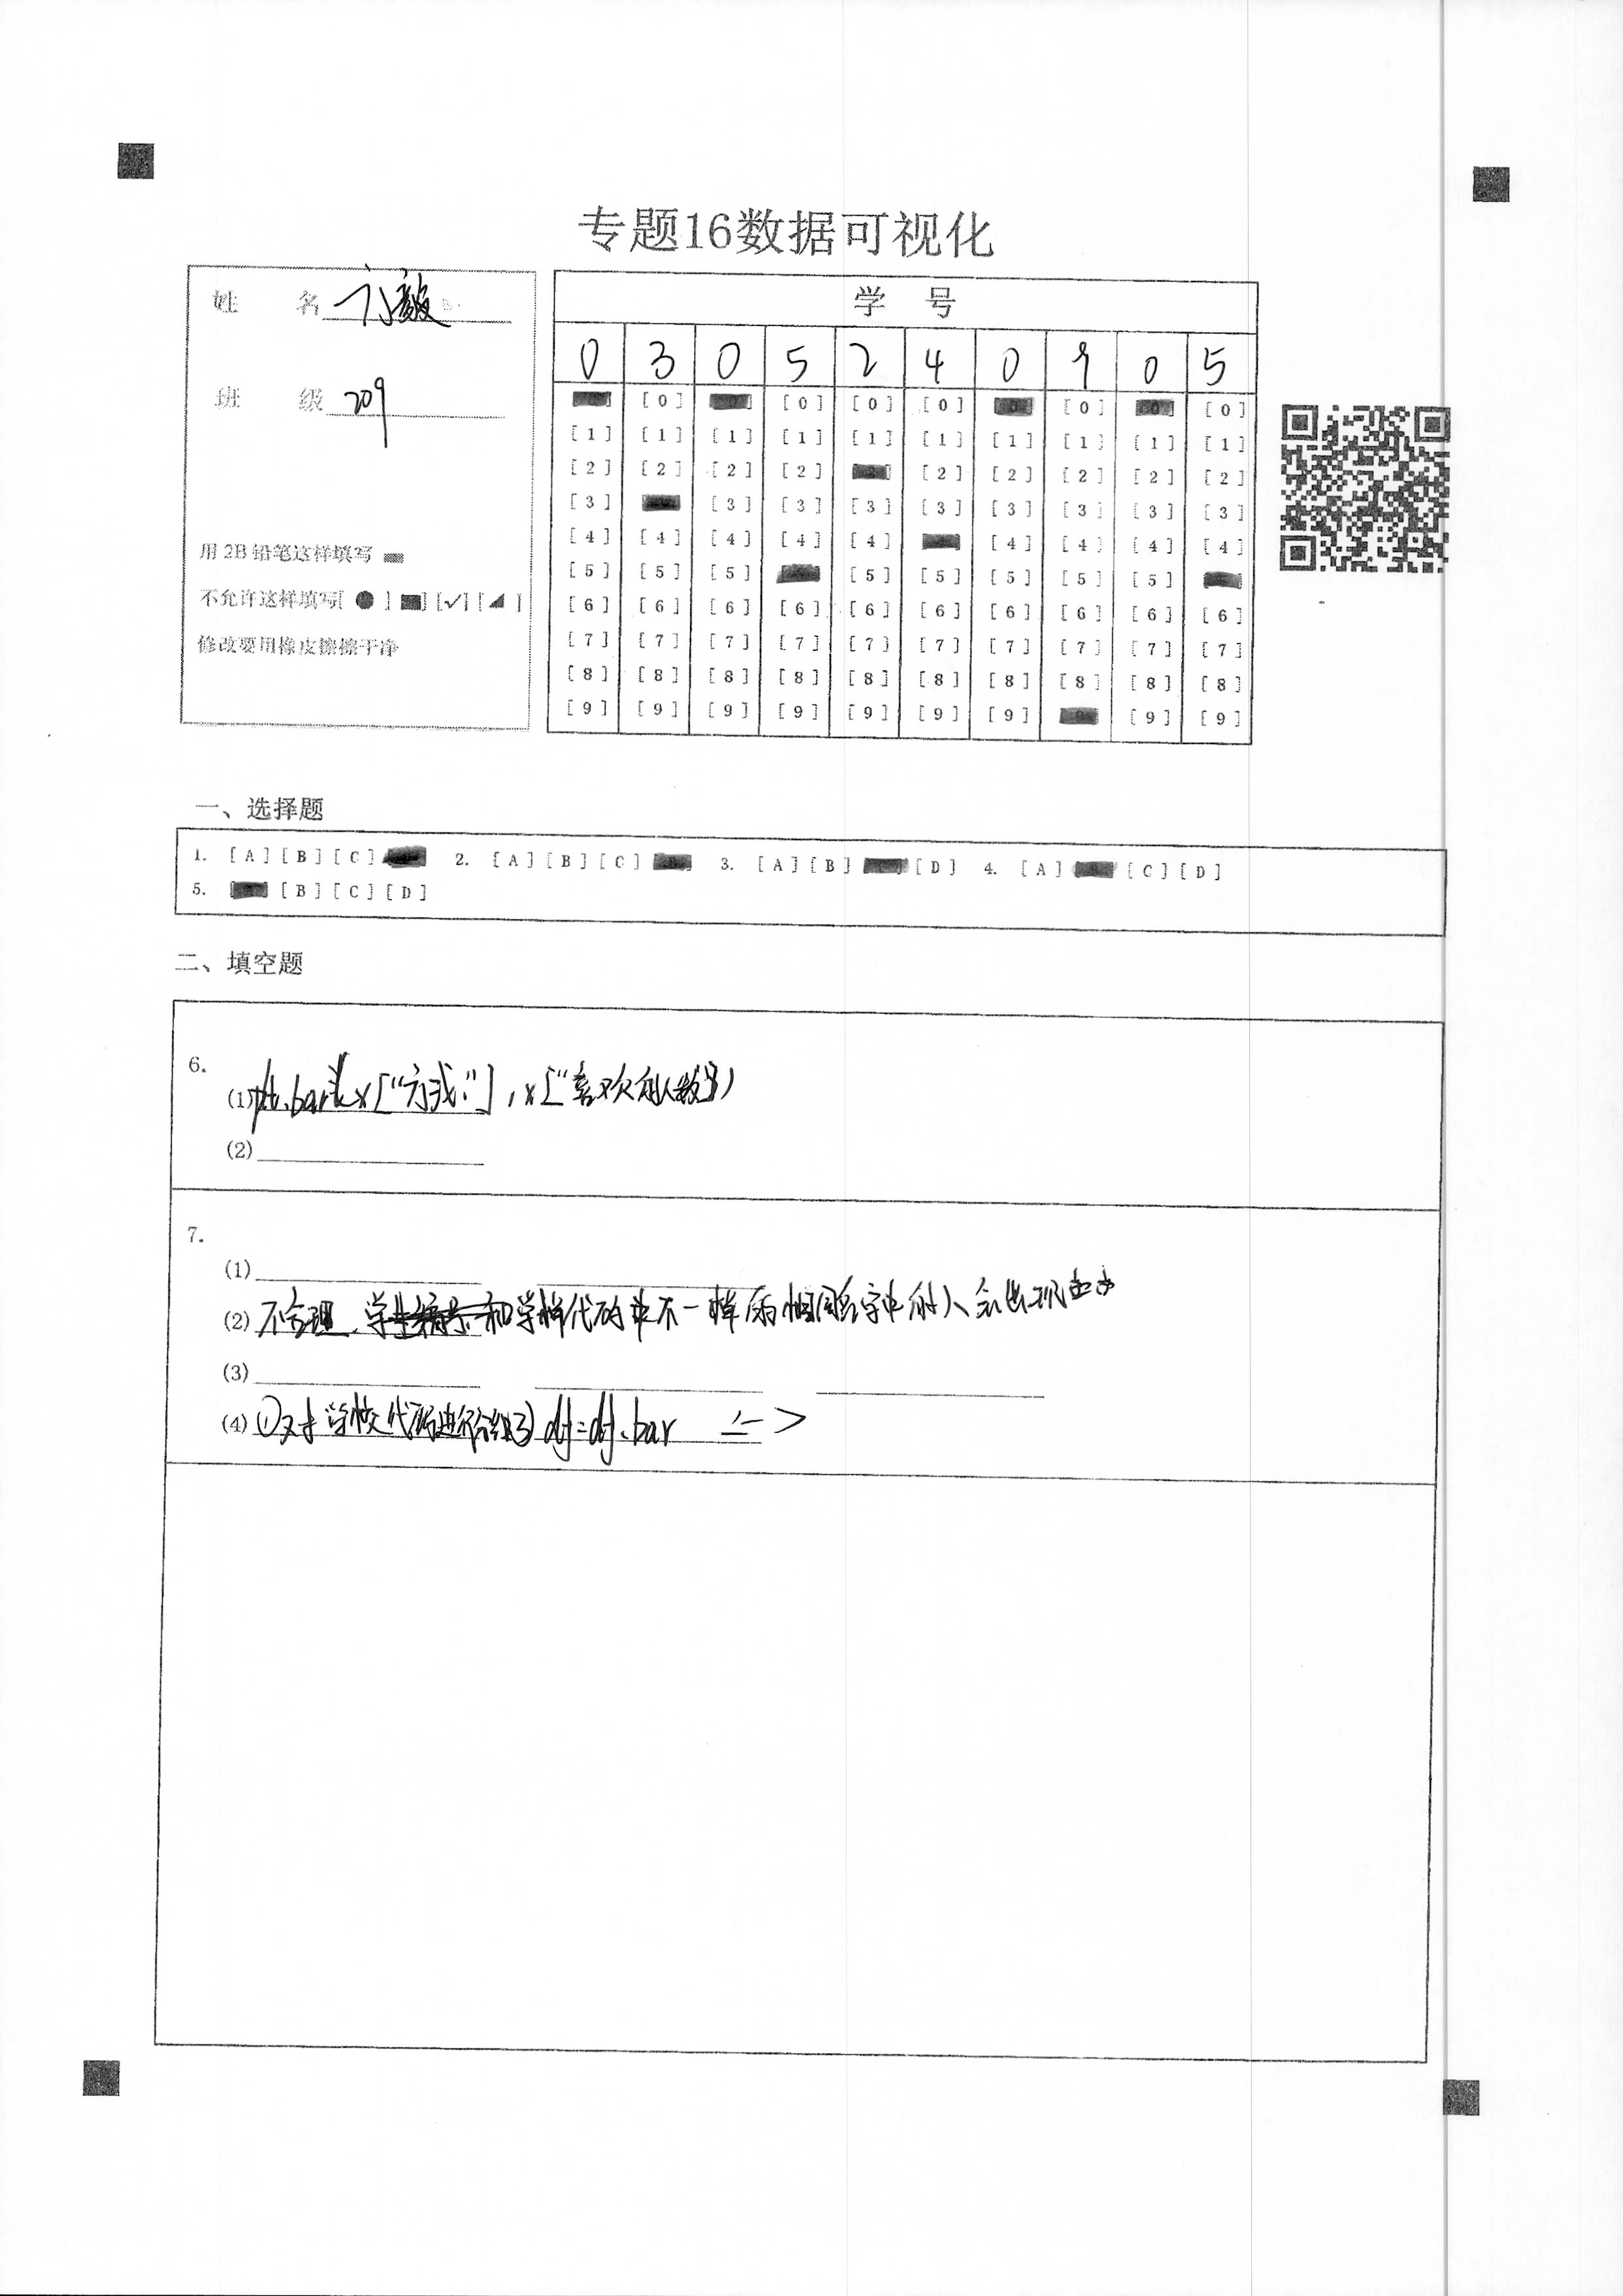 专题16数据可视化
姓 名
班 级 209
用 2B 铅笔这样填写
不允许这样填写[ ● ] ■] [✓] [◢ ]
修改要用橡皮擦擦干净
学 号
0 3 0 5 2 4 0 9 0 5
[0] [0] [0] [0] [0] [0]
[1] [1] [1] [1] [1] [1] [1] [1] [1] [1]
[2] [2] [2] [2] [2] [2] [2] [2] [2]
[3] [3] [3] [3] [3] [3] [3] [3] [3]
[4] [4] [4] [4] [4] [4] [4] [4] [4]
[5] [5] [5] [5] [5] [5] [5] [5]
[6] [6] [6] [6] [6] [6] [6] [6] [6] [6]
[7] [7] [7] [7] [7] [7] [7] [7] [7] [7]
[8] [8] [8] [8] [8] [8] [8] [8] [8] [8]
[9] [9] [9] [9] [9] [9] [9] [9] [9]
一、选择题
1. [A] [B] [C] 2. [A] [B] [C] 3. [A] [B] [D] 4. [A] [C] [D]
5. [B] [C] [D]
二、填空题
6.
(1) plt.bar(x["方式:"],x["喜欢的人数"])
(2)
7.
(1)
(2) 不合理,和学样代码中不一样而相同名字中的人会出现
(3)
(4) ①对学校代码进行分组③ df=df.bar